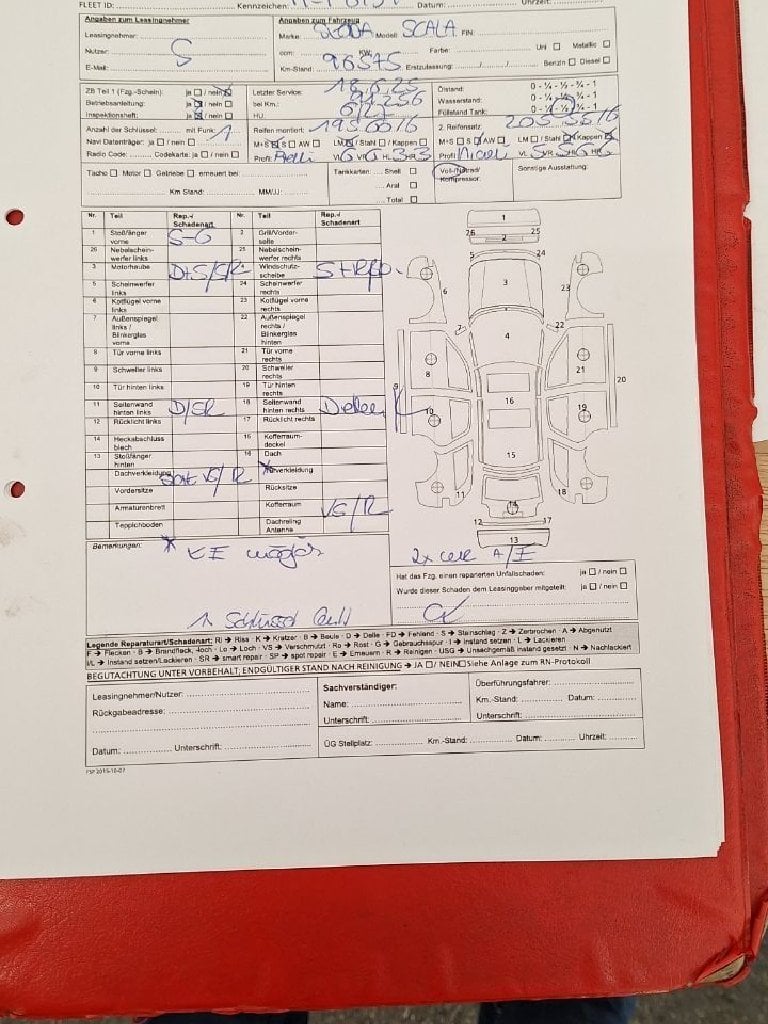 FLEET ID: Kennzeichen: Datum: Uhrzeit:
Angaben zum Leasingnehmer
Leasingnehmer:
Nutzer: S
E-Mail:
Angaben zum Fahrzeug
Marke SKODA Modell: SCALA FIN:
ccm: KW: Farbe: Uni ☐ Metallic ☐
Km-Stand: 96575 Erstzulassung: Benzin ☐ Diesel ☐
ZB Teil 1 (Fzg.-Schein): ja ☐ / nein ☒
Betriebsanleitung: ja ☒ / nein ☐
Inspektionsheft: ja ☒ / nein ☐
Letzter Service: 18.6.25
bei Km.: 91.256
HU:
Ölstand: 0 - ¼ - ½ - ¾ - 1
Wasserstand: 0 - ¼ - ½ - ¾ - 1
Füllstand Tank: 0 - ¼ - ½ - ¾ - 1
Anzahl der Schlüssel: mit Funk 1
Navi Datenträger: ja ☐ / nein ☐
Radio Code: Codekarte: ja ☐ / nein ☐
Reifen montiert: 195 60 16
M+S ☒ S ☒ AW ☐ LM ☒ / Stahl ☐ / Kappen ☐
Profil
2. Reifensatz: 205 55 16
M+S ☐ S ☒ AW ☐ LM ☐ / Stahl ☒ Kappen ☒
Profil
Tacho ☐ Motor ☐ Getriebe ☐ erneuert bei
Km Stand: MM/JJ:
Tankkarten: Shell ☐
Aral ☐
Total ☐
Voll-/Notrad/
Kompressor:
Sonstige Ausstattung:
Nr. Teil Rep.-/ Schadenart Nr. Teil Rep.-/ Schadenart:
1 Stoßfänger vorne S-G 2 Grill/Vorderseite
26 Nebelscheinwerfer links 25 Nebelscheinwerfer rechts
3 Motorhaube D+S/SR Windschutzscheibe
5 Scheinwerfer links 24 Scheinwerfer rechts
6 Kotflügel vorne links 23 Kotflügel vorne rechts
7 Außenspiegel links / Blinkerglas vorne 22 Außenspiegel rechts / Blinkerglas hinten
8 Tür vorne links 21 Tür vorne rechts
9 Schweller links 20 Schweller rechts
10 Tür hinten links 19 Tür hinten rechts
11 Seitenwand hinten links D/SR 18 Seitenwand hinten rechts Dellen
12 Rücklicht links 17 Rücklicht rechts
14 Heckabschlussblech 16 Kofferraumdeckel
13 Stoßfänger hinten 14 Dach
Dachverkleidung VS/R Türverkleidung
Vordersitze Rücksitze
Armaturenbrett Kofferraum VS/R
Teppichboden Dachreling Antenne
1
26 2 25
5 24
3
6 23
7 22
4
8 21
20
9 10 16 19
15
11 14 18
12 17
13
Bemerkungen:
1 Schlüssel
A/E
Hat das Fzg. einen reparierten Unfallschaden: ja ☐ / nein ☐
Wurde dieser Schaden dem Leasinggeber mitgeteilt: ja ☐ / nein ☐
Legende Reparaturart/Schadenart: RI → Riss · K → Kratzer · B → Beule · D → Delle · FD → Fehlend · S → Steinschlag · Z → Zerbrochen · A → Abgenutzt
F → Flecken · B → Brandfleck, -loch · Lo → Loch · VS → Verschmutzt · Ro → Rost · G → Gebrauchsspur · I → Instand setzen · L → Lackieren
I/L → Instand setzen/Lackieren · SR → smart repair · SP → spot repair · E → Erneuern · R → Reinigen · USG → Unsachgemäß instand gesetzt · N → Nachlackiert
BEGUTACHTUNG UNTER VORBEHALT; ENDGÜLTIGER STAND NACH REINIGUNG → JA ☐/ NEIN☐ Siehe Anlage zum RN-Protokoll
Leasingnehmer/Nutzer:
Rückgabeadresse:
Datum: Unterschrift:
Sachverständiger:
Name:
Unterschrift:
Überführungsfahrer:
Km.-Stand: Datum:
Unterschrift:
ÜG Stellplatz: Km.-Stand: Datum: Uhrzeit: